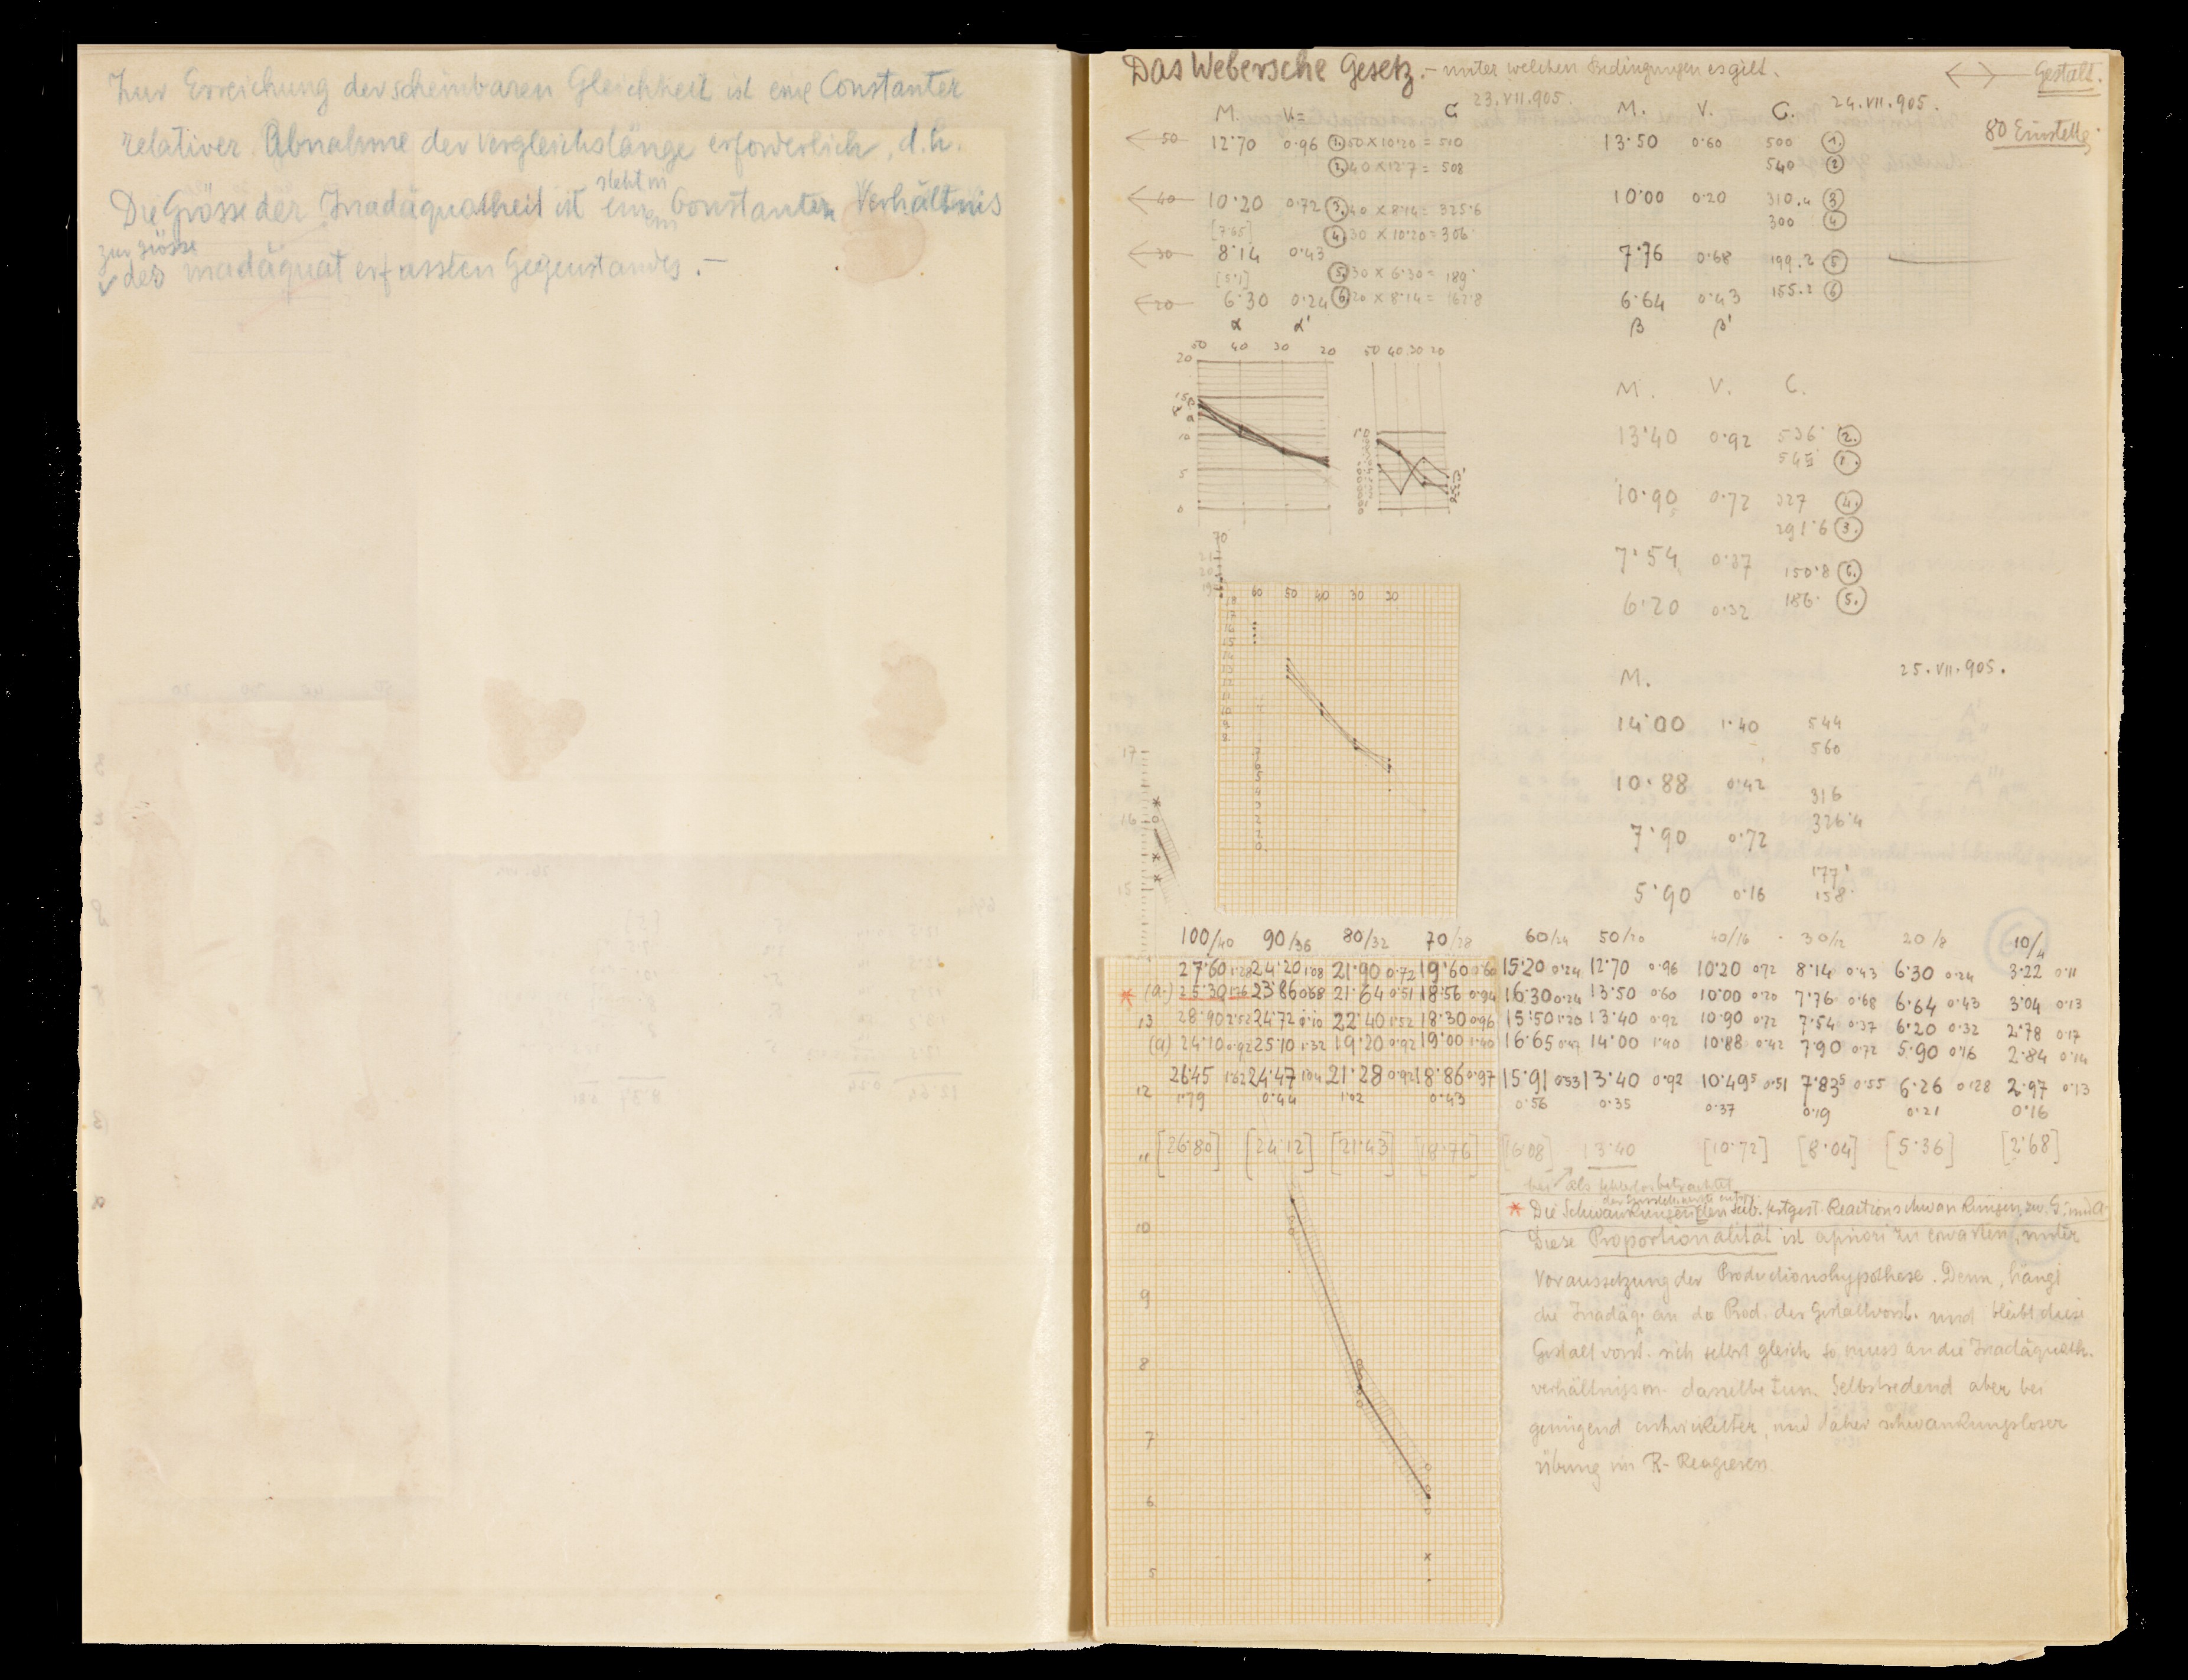 Zur Erreichung der scheinbaren Gleichheit ist eine Constanter
relativer Abnahme der Vergleichslänge erforderlich, d.h.
Die Grösse der Inadäquatheit ist ein Constanten Verhältnis
steht in
em
zur Grösse
des inadäquat erfassten Gegenstandes. –
Das Webersche Gesetz. – unter welchen Bedingungen es gilt.
←→ Gestalt.
80 Einstellg.
M. V= C 23.VII.905.
50 12·70 0·96 1. 50 × 10·20 = 510
2. 40 × 12·7 = 508
40 10·20 0·72 3. 40 × 8·14 = 325·6
[7·65] 4. 30 × 10·20 = 306
30 8·14 0·43
[5·1] 5. 30 × 6·30 = 189
20 6·30 0·24 6. 20 × 8·14 = 162·8
α α'
M. V. C. 24.VII.905.
13·50 0·60 500 1.
540 2
10·00 0·20 310·4 3
300 4
7·76 0·68 199·2 5
6·64 0·43 155·2 6
β β'
50 40 30 20
20
15
10
5
0
50 40 30 20
1·0
M. V. C.
13·40 0·92 536 2.
545 1.
10·90 0·72 327 4.
291·6 3.
7·54 0·37 150·8 6.
6·20 0·32 186 5.
70
60 50 40 30 20
M. 25.VII.905.
14·00 1·40 544
560
10·88 0·42 316
326·4
7·90 0·72
177
5·90 0·16 158
17
16
15
100/40 90/36 80/32 70/28 60/24 50/20 40/16 30/12 20/8 10/4
27·60 1·28 24·20 1·08 21·90 0·72 19·60 0·60 15·20 0·24 12·70 0·96 10·20 0·72 8·14 0·43 6·30 0·24 3·22 0·11
* (a.) 25·30 1·26 23·86 0·68 21·64 0·51 18·56 0·94 16·30 0·24 13·50 0·60 10·00 0·20 7·76 0·68 6·64 0·43 3·04 0·13
13 28·90 2·52 24·72 24·72 22·40 1·52 18·30 0·96 15·50 1·20 13·40 0·92 10·90 0·72 7·54 0·37 6·20 0·32 2·78 0·17
(a) 24·10 0·92 25·10 1·32 19·20 0·92 19·00 1·40 16·65 0·47 14·00 1·40 10·88 0·42 7·90 0·72 5·90 0·16 2·84 0·14
26·45 1·62 24·47 1·04 21·28 0·92 18·86 0·97 15·91 0·53 13·40 0·92 10·49⁵ 0·51 7·83⁵ 0·55 6·26 0·28 2·97 0·13
12 1·79 0·44 1·02 0·43 0·56 0·35 0·37 0·19 0·21 0·16
11 [26·80] [24·12] [21·43] [18·76] [16·08] 13·40 [10·72] [8·04] [5·36] [2·68]
hier als fehlerlos betrachtet
10
9
8
7
6
5
* Die Schwankungen den sub. festgest. Reactionschwankungen zw. G. und A.
Diese Proportionalität ist apriori zu erwarten, unter
Voraussetzung der Productionshypothese. Denn, hängt
die Inadäq. an der Prod. der Gestaltvorst. und bleibt diese
Gestaltvorst. sich selbst gleich so muss an die Inadäquath.
verhältnissen dasselbe tun. Selbstredend aber bei
genügend entwickelter, und daher schwankungsloser
Übung im R-Reagieren.